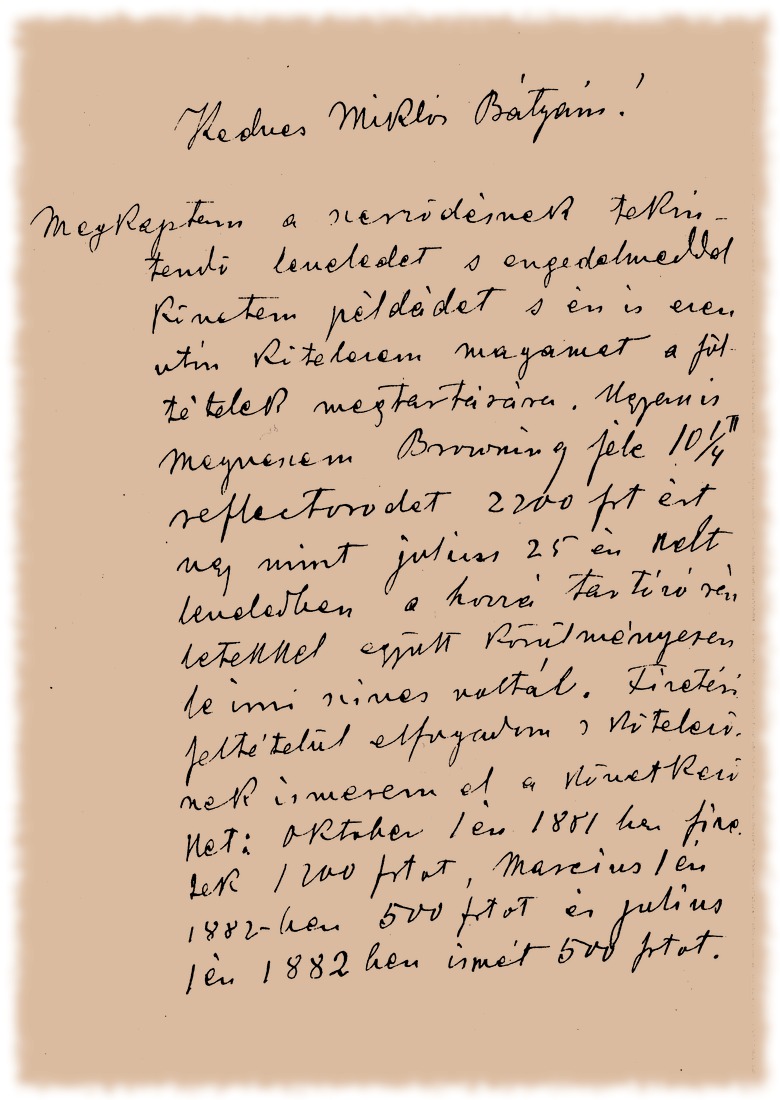 Kedves Miklós Bátyám!
Megkaptam a szerződésnek tekin-
tendő leveledet s engedelmeddel
követem példádat s én is ezen
úton kötelezem magamat a föl-
tételek megtartására. Ugyanis
megveszem Browning féle 10 1/4"
reflectorodat 2200 frt ért
úgy mint július 25 én kelt
leveledben a hozzá tartozó rész
letekkel együtt körülményesen
leírni szíves voltál. Fizetési
feltételül elfogadom s kötelező-
nek ismerem el a következő
ket: Oktober 1 én 1881 ben fize-
tek 1200 frtot, Marczius 1 én
1882-ben 500 frtot és július
1 én 1882 ben ismét 500 frtot.